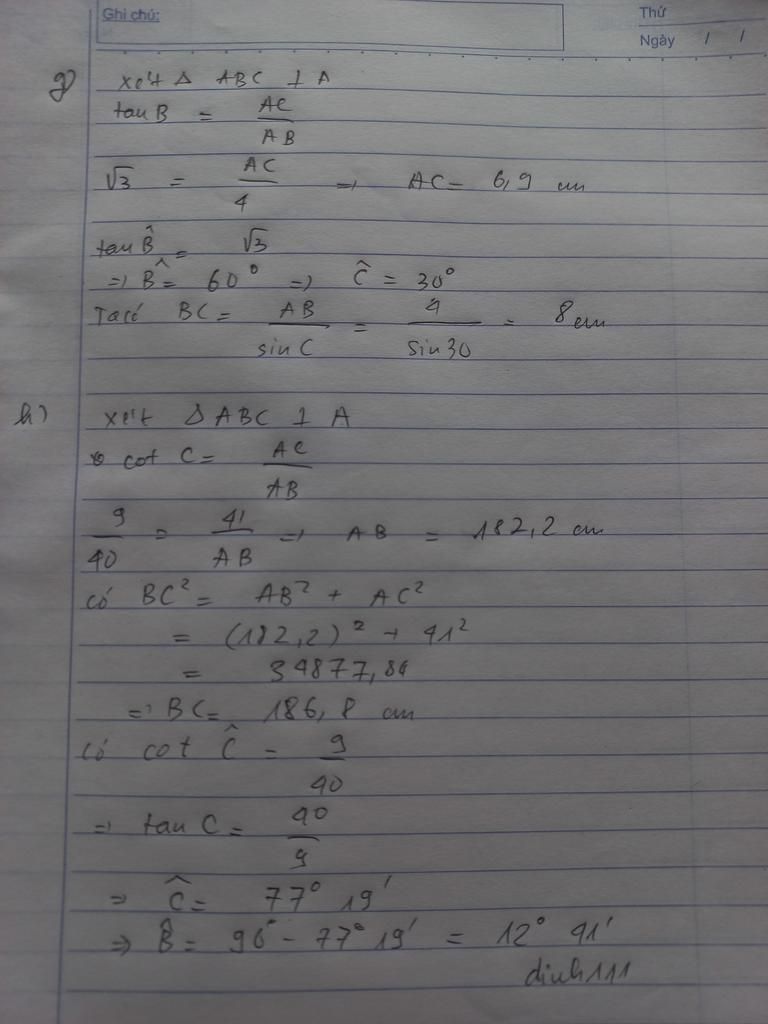 Ghi chú:
Thứ
Ngày / /
g) xét Δ ABC ⊥ A
tan B = AC / AB
√3 = AC / 4 => AC = 6,9 cm
tan B̂ = √3
=> B̂ = 60° => Ĉ = 30°
Ta có BC = AB / sin C = 4 / sin 30 = 8 cm
h) xét Δ ABC ⊥ A
cot C = AC / AB
9 / 40 = 41 / AB => AB = 182,2 cm
có BC² = AB² + AC²
= (182,2)² + 41²
= 34877,84
=> BC = 186,8 cm
có cot Ĉ = 9 / 40
=> tan C = 40 / 9
=> Ĉ = 77° 19'
=> B̂ = 90° - 77° 19' = 12° 41'
dinh111